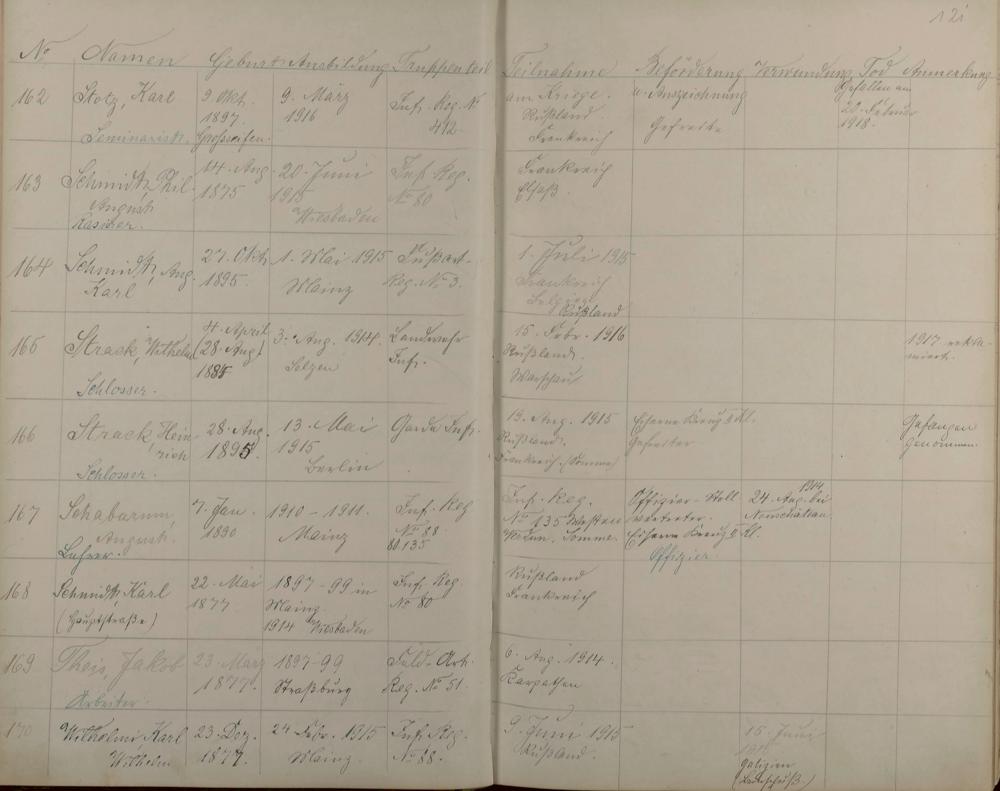 121
No Namen Geburt Ausbildung Truppenteil Teilnahme am Kriege. Beförderung u. Auszeichnung Verwundung Tod Anmerkung
162 Stotz, Karl 9. Okt. 9. März Inf. Reg. No Rußland Gefreite Gefallen am
1897. 1916 412. Frankreich 22. Februar
Seminarist. 1918.
163 Schmidt, Phil. 14. Aug. 20. Juni Inf. Reg. Frankreich
August 1875 1915 No 80 Elsaß.
Kassierer. Wiesbaden
164 Schmidt, Aug. 27. Okt. 1. Mai 1915 Fußart- 1. Juli 1915
Karl 1895. Mainz Reg. No 3. Frankreich
Belgien
Rußland
165 Strack, Wilhelm 4. April 3. Aug. 1914. Landwehr 15. Febr. 1916 1917 rekla-
(28. Aug.) Selzen Inf. Rußland. miert.
Schlosser. 1885 Warschau
166 Strack, Hein- 28. Aug. 13. Mai Garde Inf. 13. Aug. 1915 Eiserne Kreuz II Kl. Gefangen
rich 1895. 1915 Rußland. Gefreiter genommen.
Schlosser. Berlin Frankreich. (Somme)
167 Schabarum, 7. Jan. 1910 - 1911. Inf. Reg Inf. Reg. Offizier-Stell 24. Aug. bei 1914
August. 1890 Mainz No 88 No 135 Westen vertreter. Neufchateau.
Lehrer. 80.135 Verdun. Somme. Eiserne Kreuz II Kl.
Offizier.
168 Schmidt, Karl 22. Mai 1897 - 99 in Inf. Reg. Rußland
(Hauptstraße) 1877 Mainz No 80 Frankreich
1914 Wiesbaden
169 Theis, Jakob 23. März 1897-99 Feld-Art. 6. Aug. 1914.
1877. Straßburg Reg. No 51. Karpathen
Arbeiter.
170 Wilhelmi, Karl 23. Dez. 24. Febr. 1915 Inf. Reg. 9. Juni 1915 15. Juni
Wilhelm 1877. Mainz. No 88. Rußland. Galizien